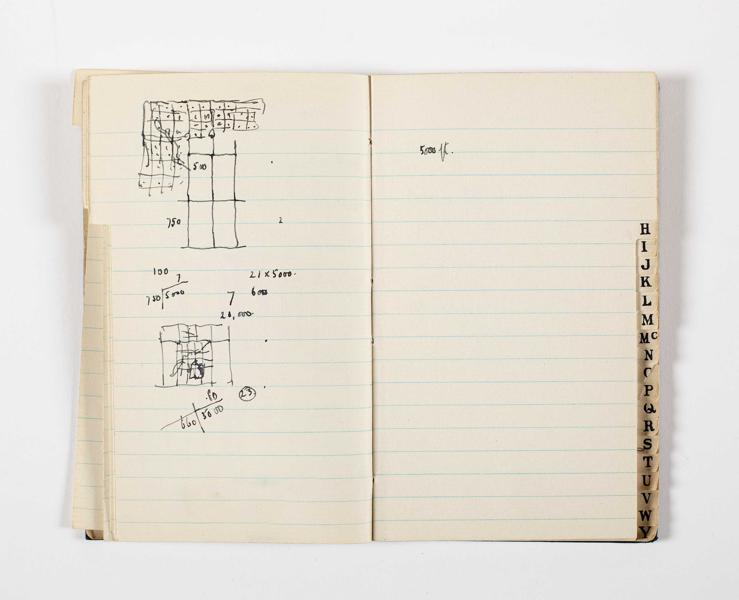 500
750
2
100
7
750 5000
21 x 5000.
7 6000
20,000
23
5000
5000 ft.
H
I
J
K
L
M
Mc
N
O
P
Q
R
S
T
U
V
W
Y